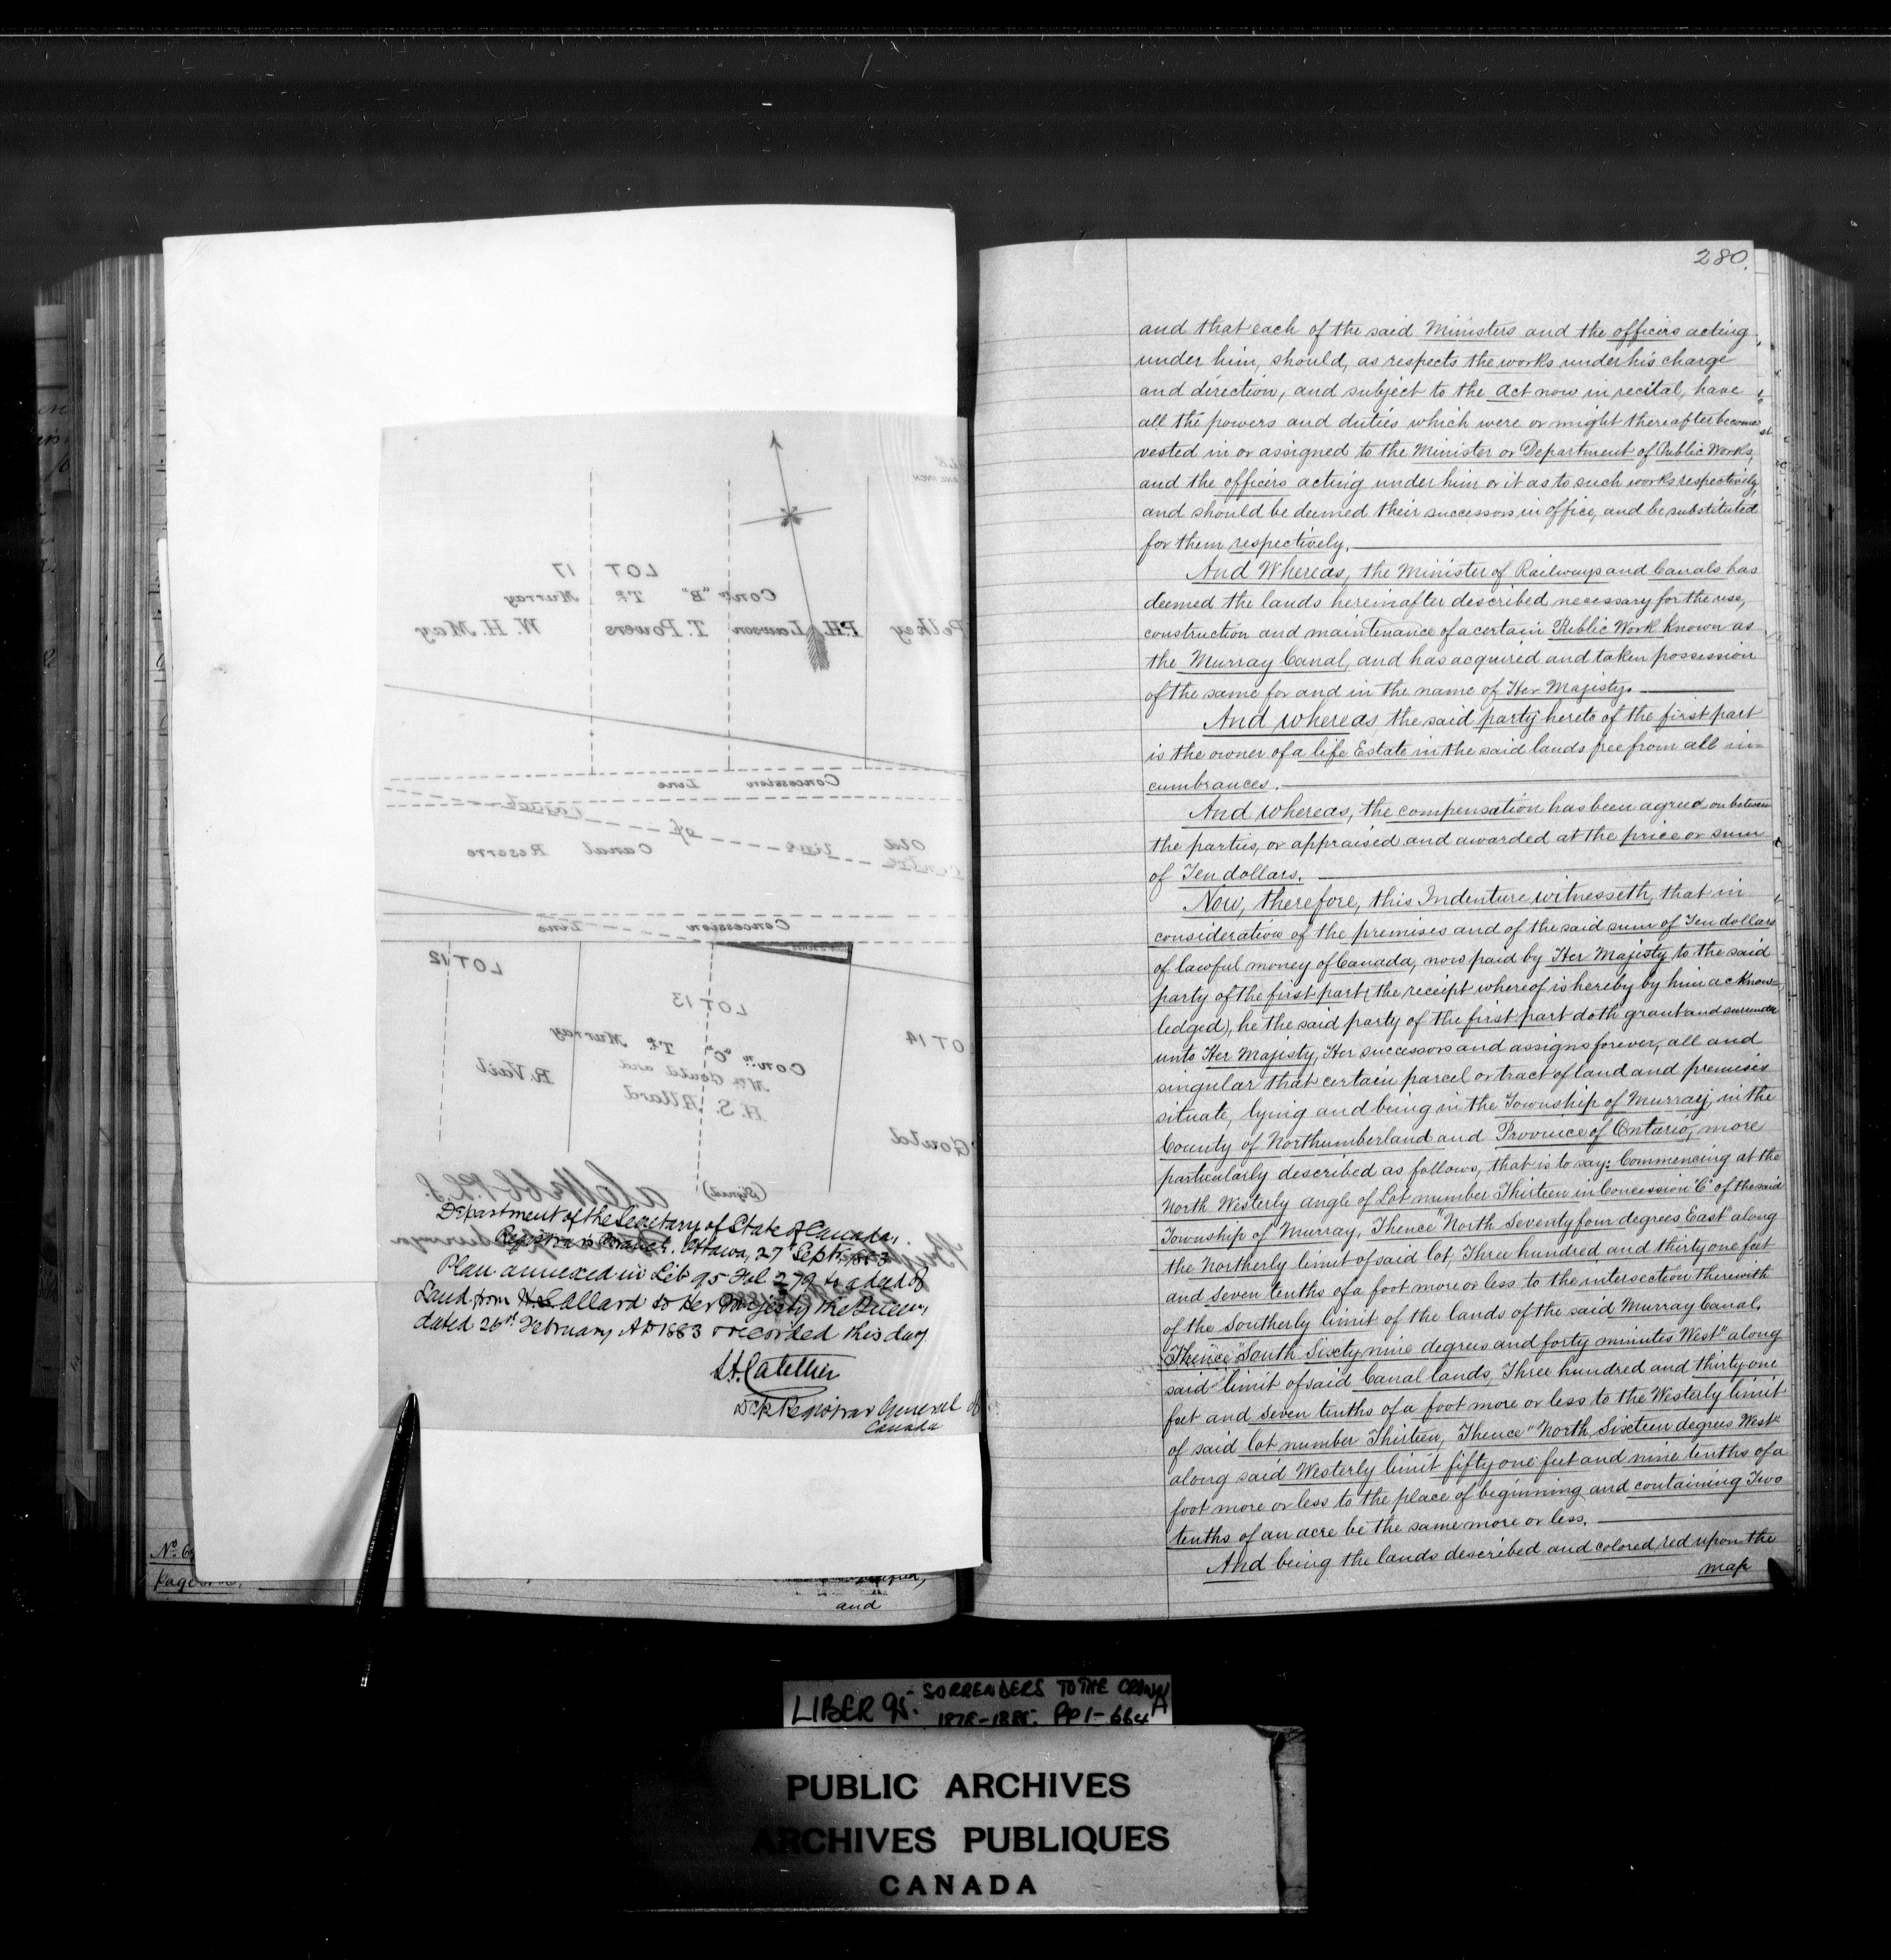 LOT 17
Con. "B" Tp. Murray
Pelkey P.H. Lawson T. Powers W. H. May
Concession Line
Old Canal Reserve
Centre line of Canal
Concession Line
LOT 14 LOT 13 LOT 12
Con. "C" Tp. Murray
Gould
Mrs. Gould and
H. S. Allard
B. Vail
(Signed)
Department of the Secretary of State of Canada,
Registrar's Branch. Ottawa, 27th Sept. 1883
Plan annexed in Lib 95 Fol 279 to a deed of
Land from H.S. Allard to Her Majesty the Queen,
dated 26th February AD 1883 & recorded this day
Dep. Registrar General of
Canada
and
280.
and that each of the said Ministers and the officers acting
under him, should, as respects the works under his charge
and direction, and subject to the Act now in recital, have
all the powers and duties which were or might thereafter become
vested in or assigned to the Minister or Department of Public Works,
and the officers acting under him or it as to such works respectively,
and should be deemed their successors in office, and be substituted
for them respectively.
And Whereas, the Minister of Railways and Canals has
deemed the lands hereinafter described necessary for the use,
construction and maintenance of a certain Public Work known as
the Murray Canal, and has acquired and taken possession
of the same for and in the name of Her Majesty.
And whereas the said party hereto of the first part
is the owner of a life Estate in the said lands free from all in=
cumbrances.
And whereas, the compensation has been agreed on between
the parties, or appraised and awarded at the price or sum
of Ten dollars.
Now, therefore, this Indenture witnesseth, that in
consideration of the premises and of the said sum of Ten dollars
of lawful money of Canada, now paid by Her Majesty to the said
party of the first part (the receipt whereof is hereby by him acknow=
ledged), he the said party of the first part doth grant and surrender
unto Her Majesty, Her successors and assigns forever, all and
singular that certain parcel or tract of land and premises
situate, lying and being in the Township of Murray, in the
County of Northumberland and Province of Ontario, more
particularly described as follows, that is to say: Commencing at the
North Westerly angle of Lot number Thirteen in Concession "C" of the said
Township of Murray, Thence "North Seventy four degrees East" along
the Northerly limit of said lot, Three hundred and thirty one feet
and seven tenths of a foot more or less to the intersection therewith
of the Southerly limit of the lands of the said Murray Canal,
Thence "South Sixty nine degrees and forty minutes West" along
said limit of said Canal lands, Three hundred and thirty one
feet and seven tenths of a foot more or less to the Westerly limit
of said lot number Thirteen, Thence "North Sixteen degrees West"
along said Westerly limit fifty one feet and nine tenths of a
foot more or less to the place of beginning and containing Two
tenths of an acre be the same more or less.
And being the lands described and colored red upon the
map
LIBER 95. SURRENDERS TO THE CROWN
1878-1885. PP 1-664A
PUBLIC ARCHIVES
ARCHIVES PUBLIQUES
CANADA